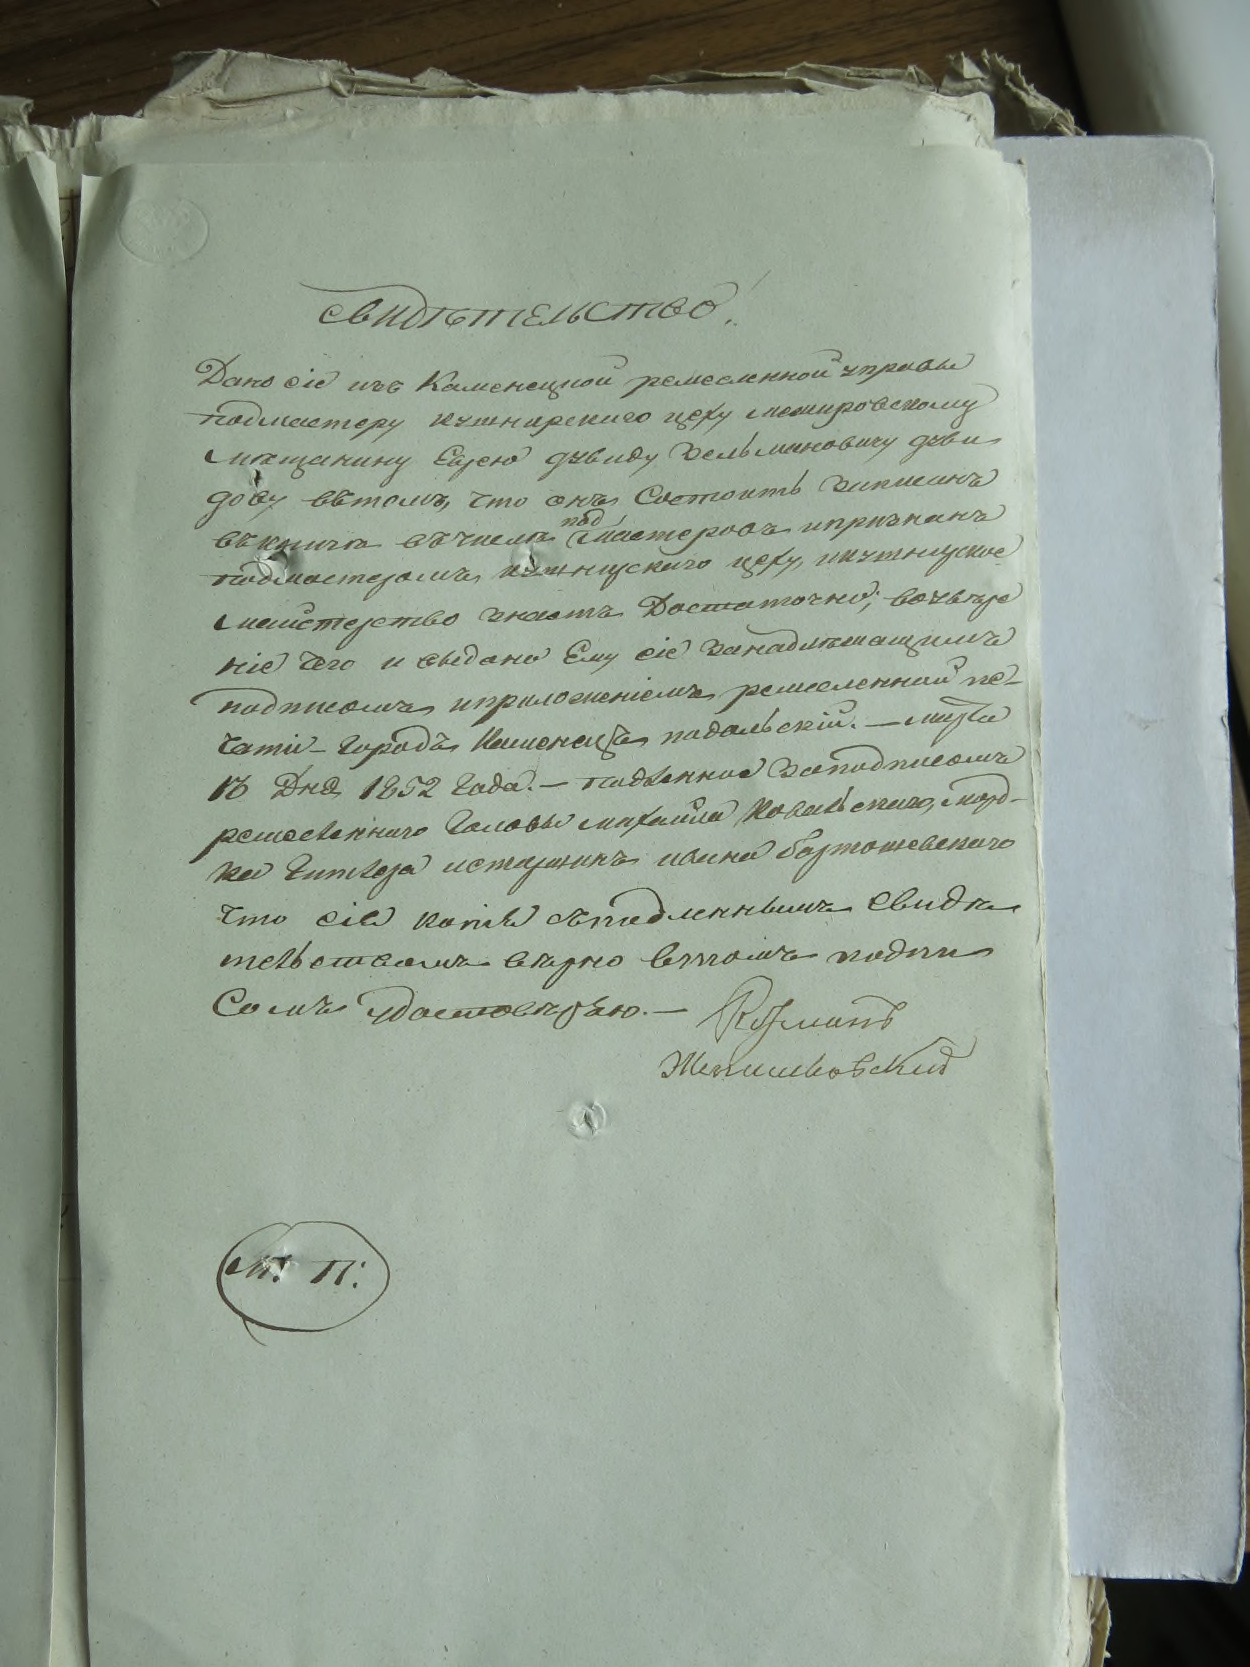 Свидѣтельство.
Дано сіе изъ Каменецкой ремесленной управы
подмастеру кушнирскаго цеху межировскому
мещанину Еврею дувиду Зельмановичу дуви
дову вътомъ, что онъ Состоитъ записанъ
въкниги въчисле подмастеровъ ипризнанъ
подмастеромъ кушнирскаго цеху, икушнирское
маистерство знаетъ Достаточно; воувѣре
ніе чего и выдано Ему сіе Занадлежащимъ
подписомъ иприложеніемъ ремесленной пе-
чати – городъ Каменецъ подольскій. – марта
Дня 1852 Года. – подленное Заподписомъ
ремесленнаго Головы михаила Ковальскаго, морд-
ка истаршинъ ивана бартошевскаго
что сіе копія съподленнымъ Свидѣ
тельствомъ вѣрно вчомъ подпи
сомъ удостовѣряю. – Романъ
М: П: